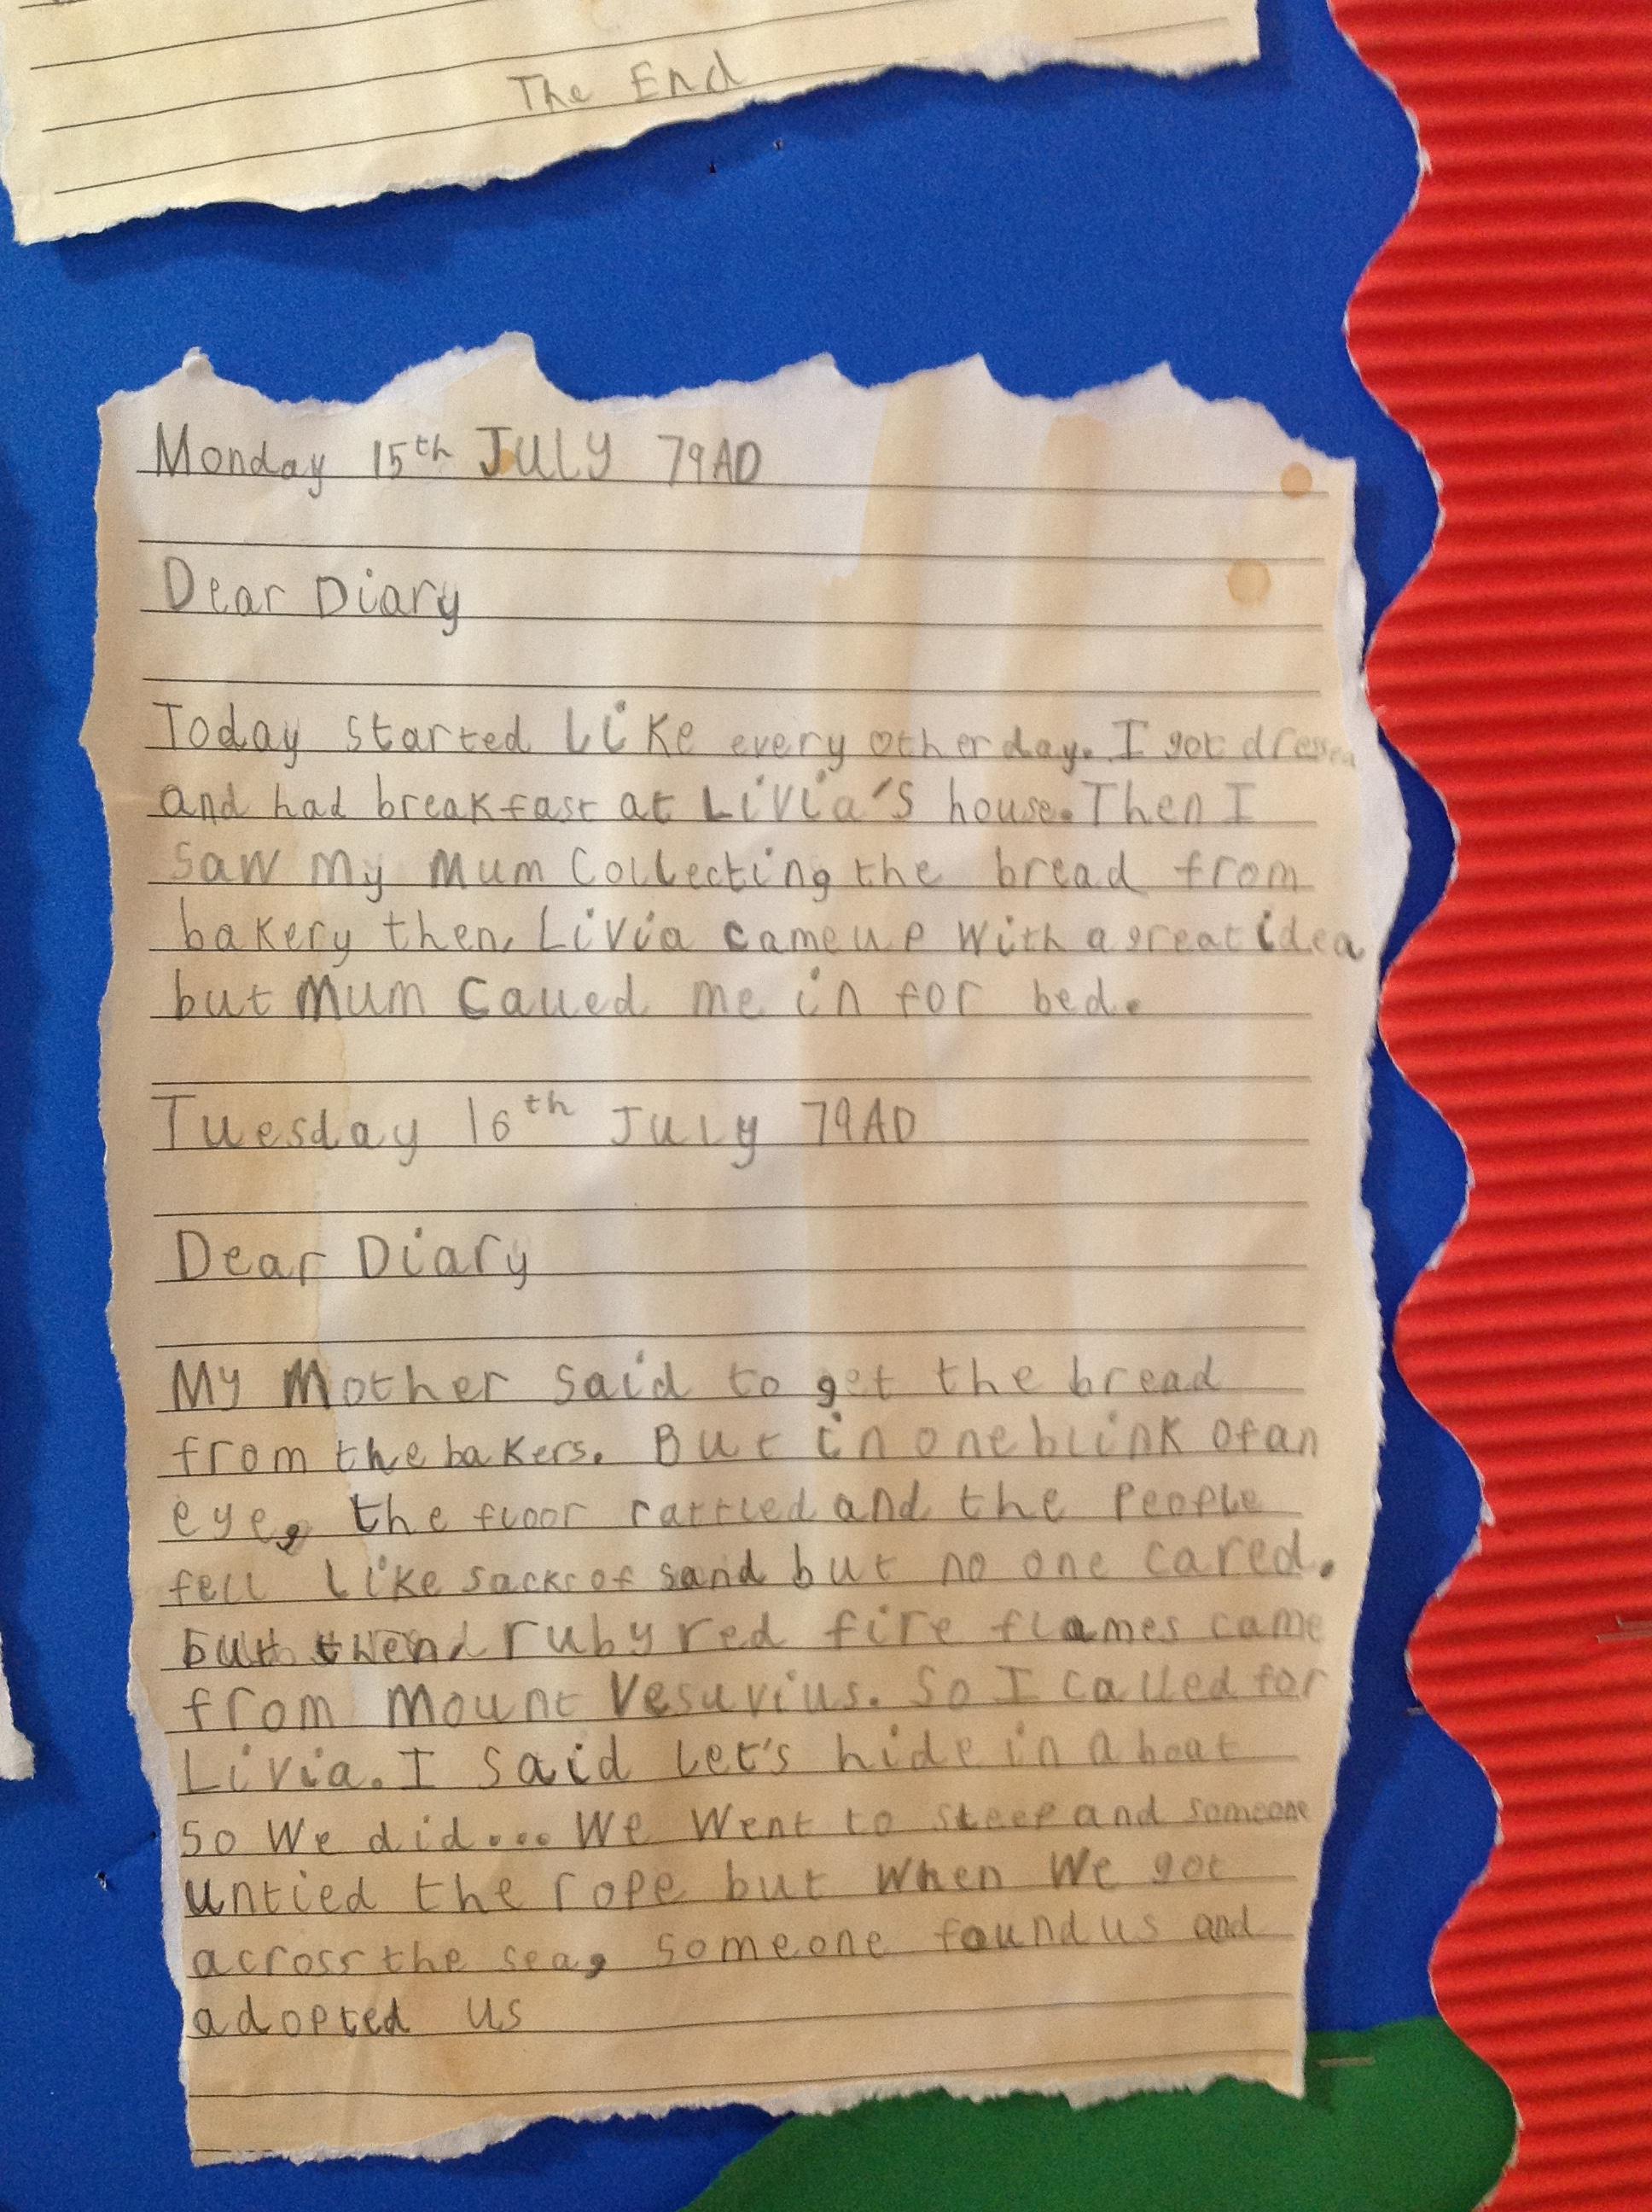 The End
Monday 15th JULY 79AD
Dear Diary
Today started Like every other day. I got dressed
and had breakfast at Livia's house. Then I
saw my Mum Collecting the bread from
bakery then, Livia came up with a great idea
but Mum Caued me in for bed.
Tuesday 16th July 79AD
Dear Diary
My Mother said to get the bread
from the bakers. But in one blink of an
eye, the floor rattled and the people
fell like sacks of sand but no one cared.
but then ruby red fire flames came
from Mount Vesuvius. So I called for
Livia. I said Let's hide in a boat
So We did... We Went to sleep and someone
untied the rope but When We got
across the sea, someone found us and
adopted us